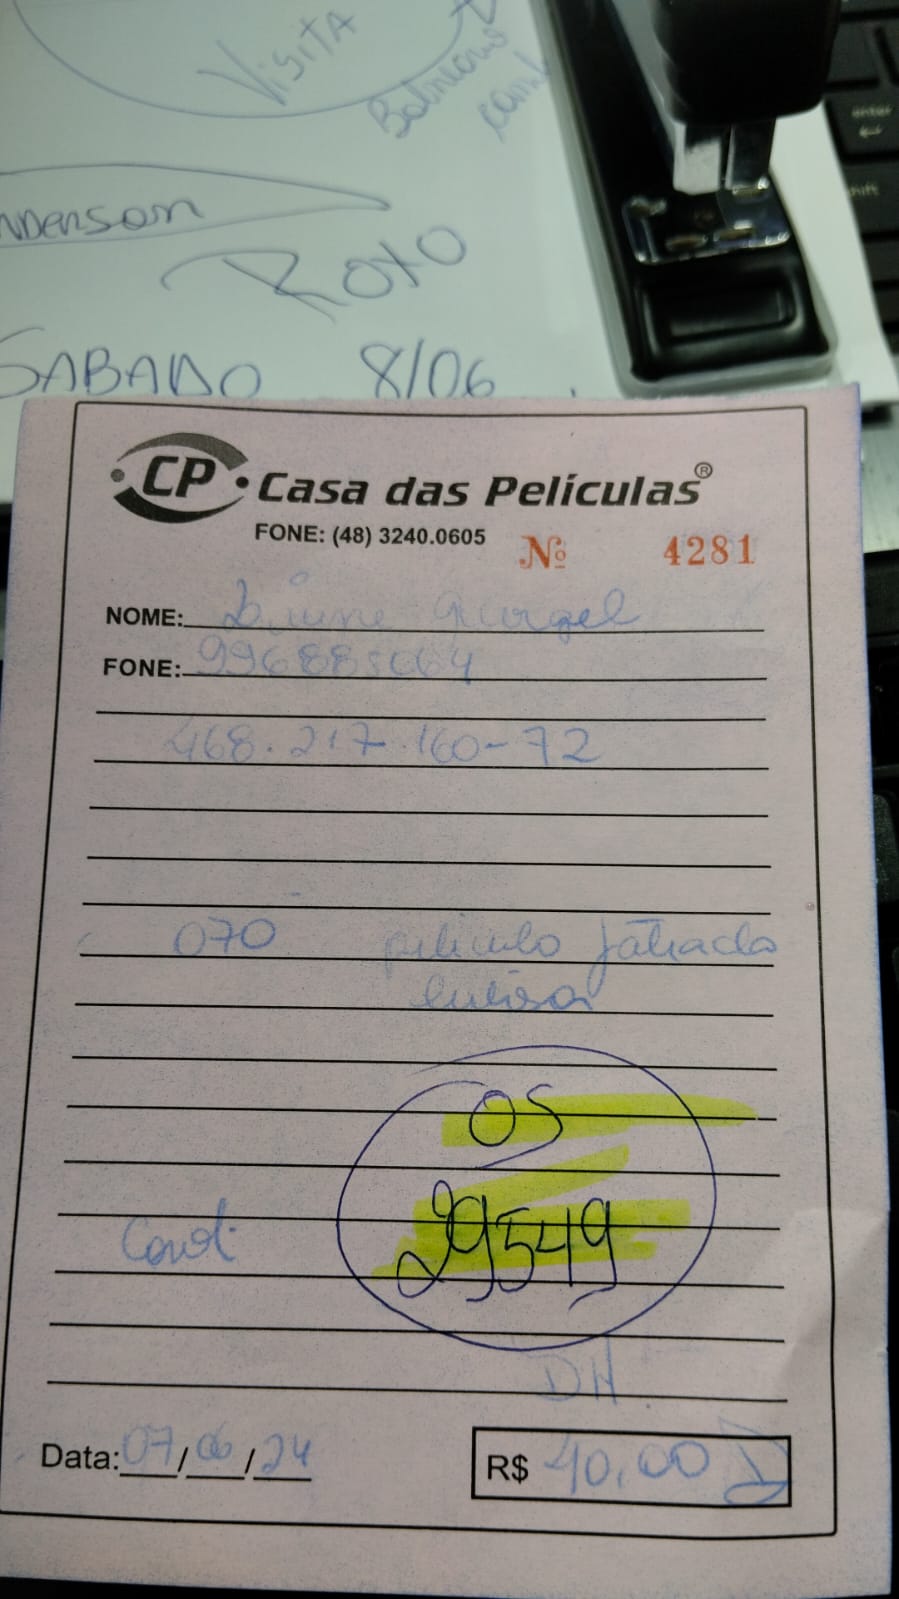 VISITA
Balneario
camb
NDERSON
ROXO
SABADO 8/06
enter
shift
CP Casa das Películas®
FONE: (48) 3240.0605
Nº 4281
NOME: Gurgel
FONE:
468.217.160-72
070 película
OS
29549
DH
Data: 07/06/24
R$ 40,00